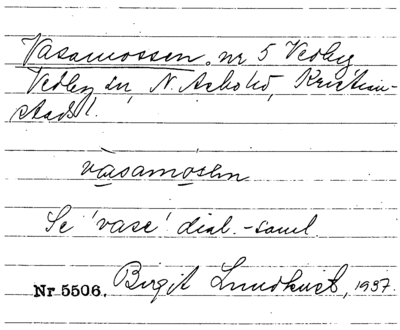 Vasamossen, nr 5 Vedby
Vedby sn, N. Åsbo hd, Kristian-
stads l.
vasamosen
Se 'vase' dial.-saml
Nr 5506. Birgit Lundkvist, 1937.